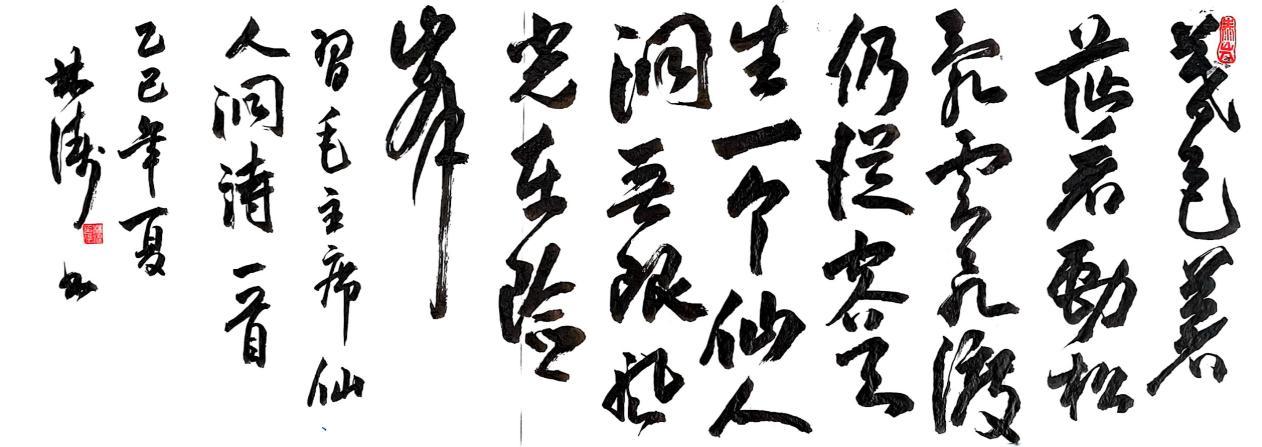 暮色苍
茫看劲松
乱云飞渡
仍從容天
生一个仙人
洞无限风
光在险
峰
習毛主席仙
人洞诗一首
乙巳年夏
林涛书